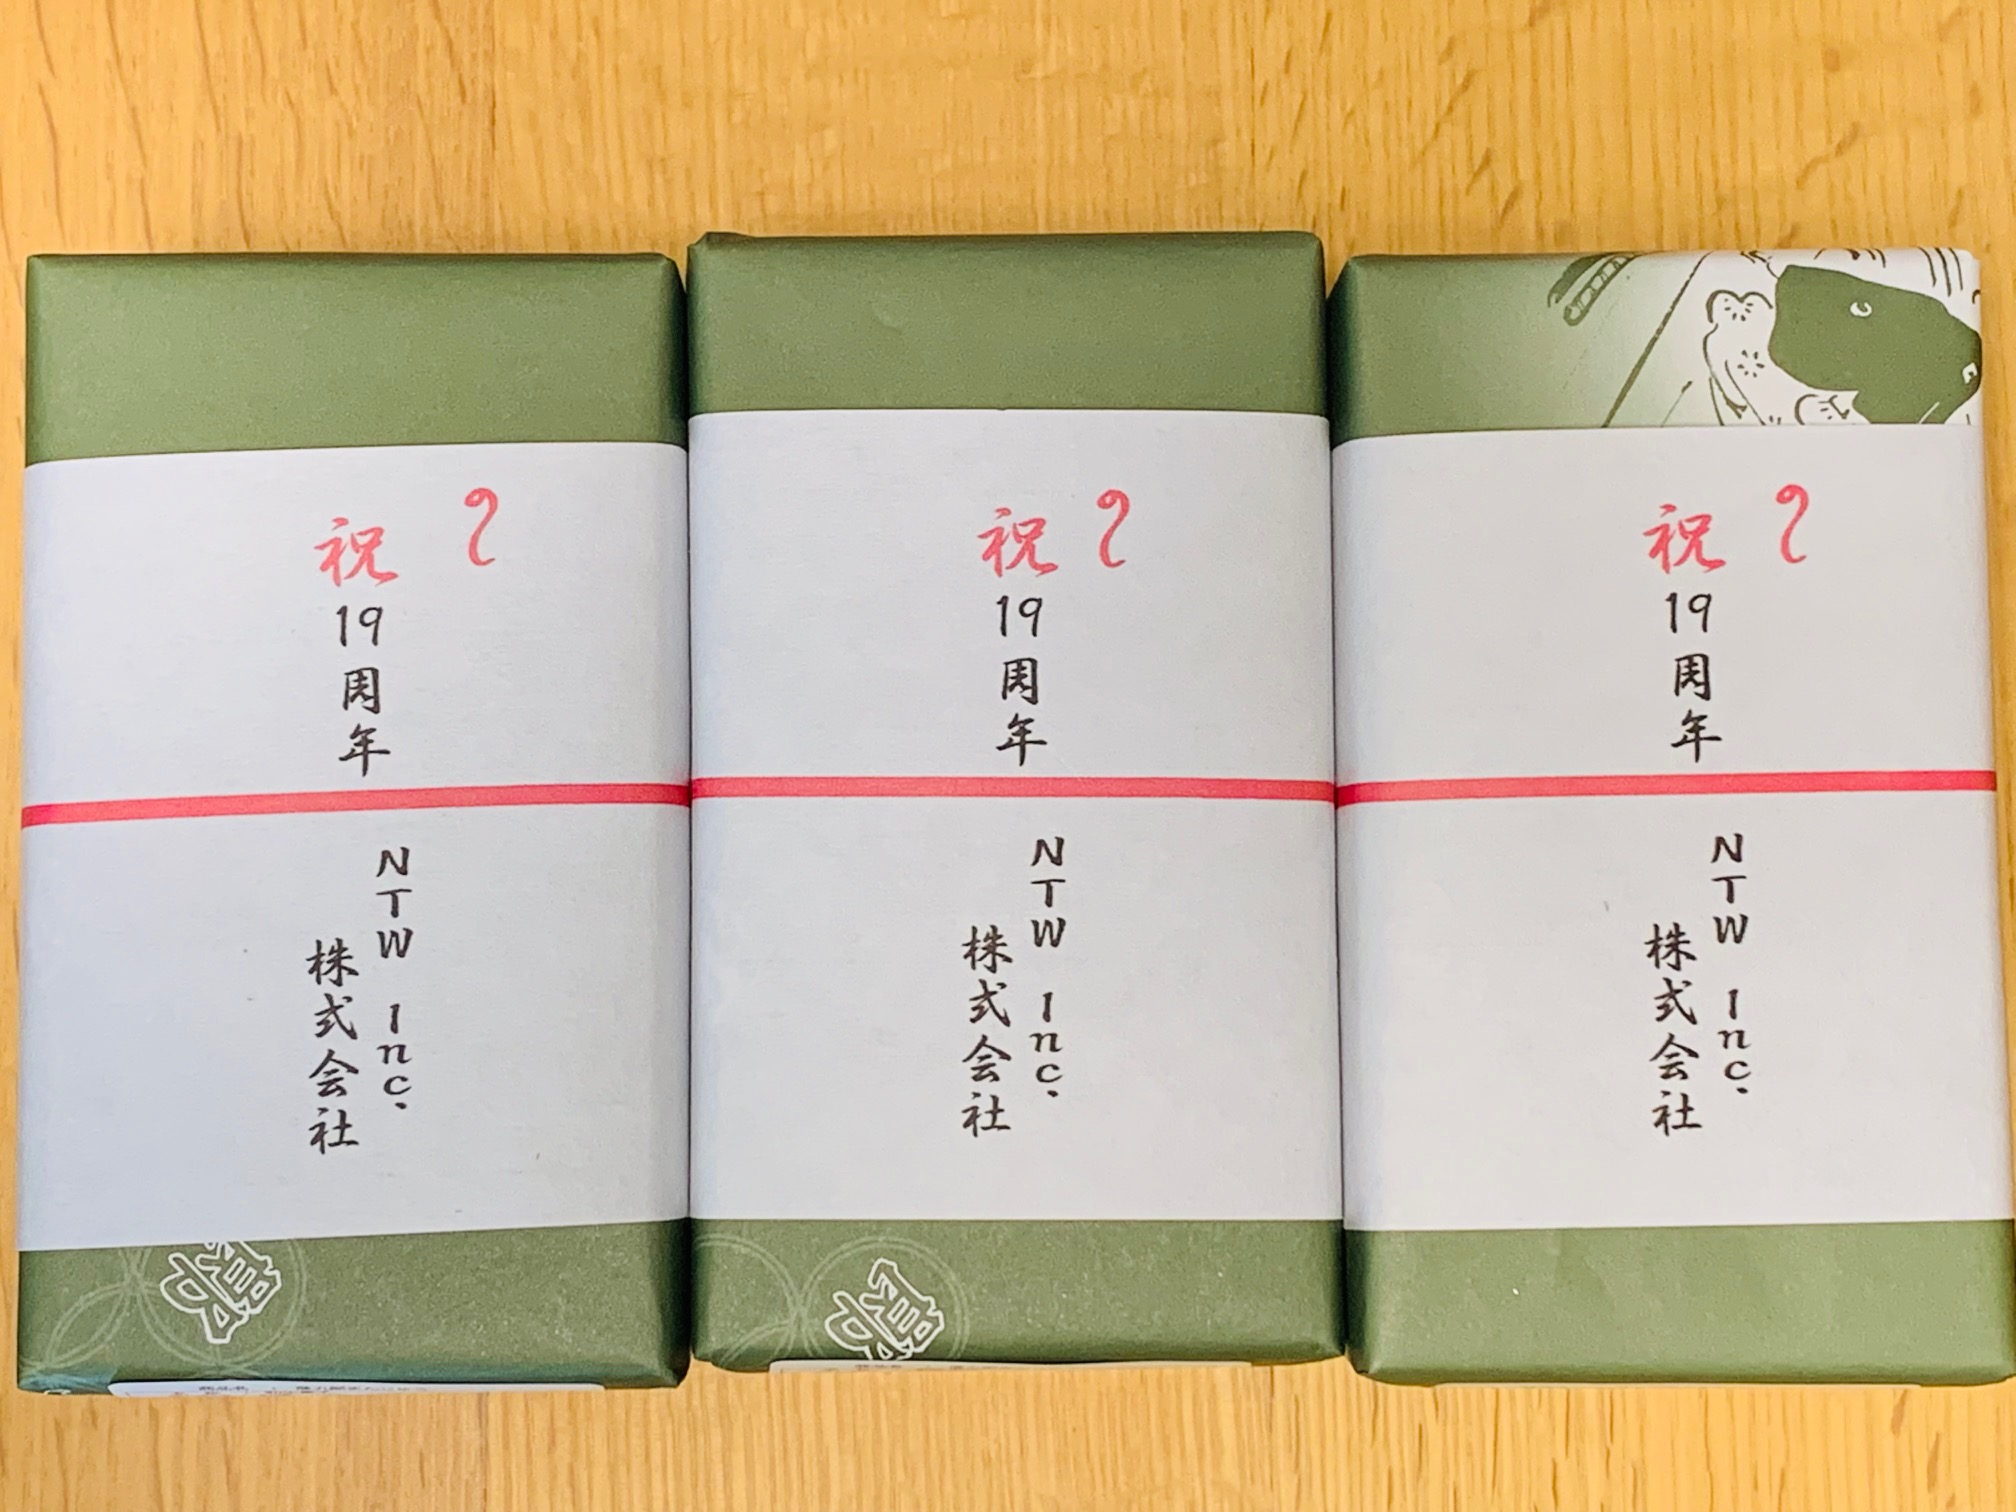 祝
19周年
NTW Inc.
株式会社
祝
19周年
NTW Inc.
株式会社
祝
19周年
NTW Inc.
株式会社